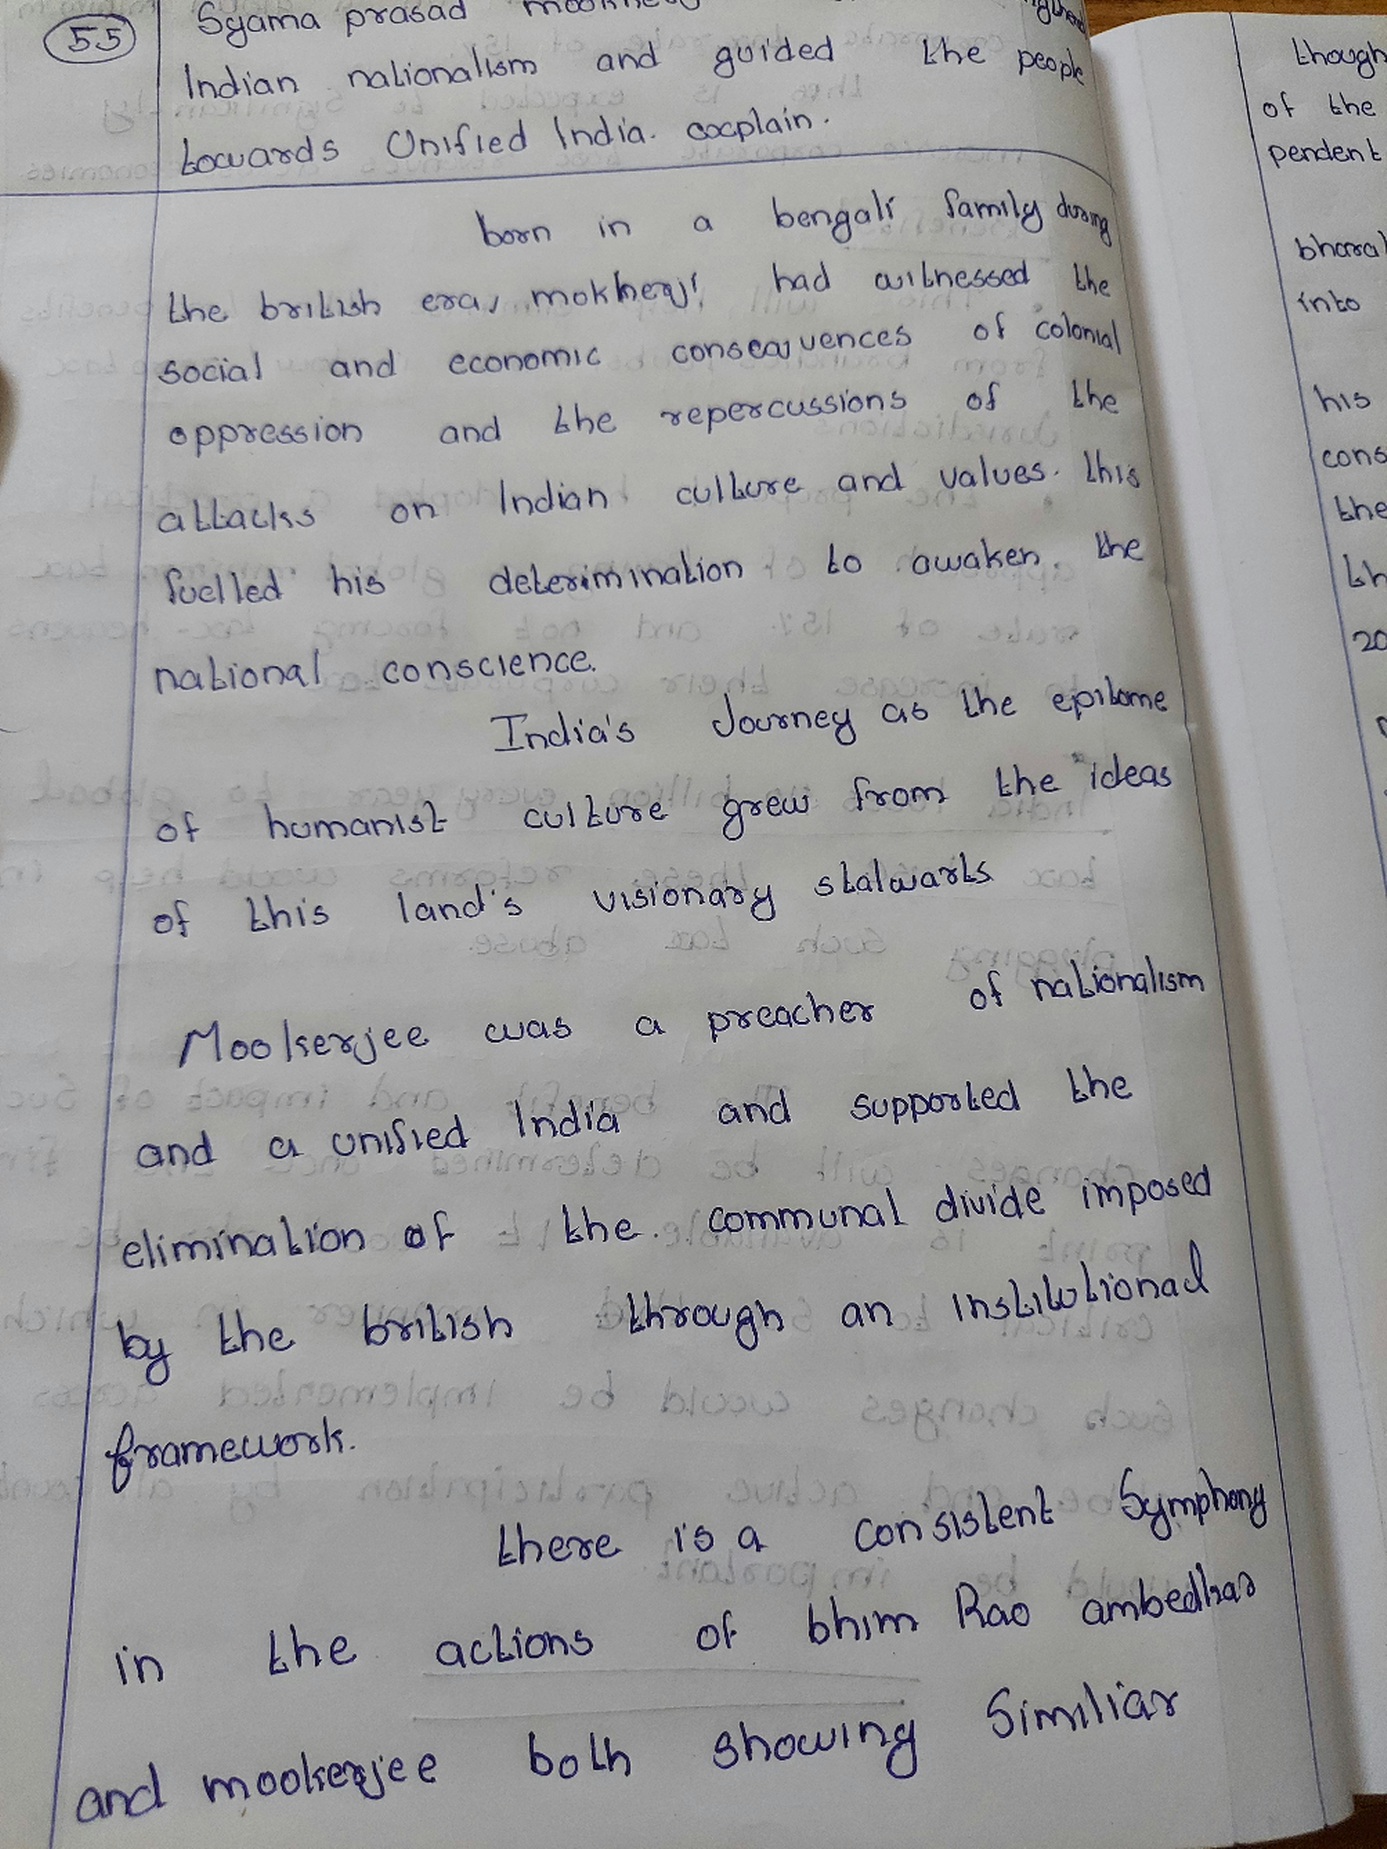 55
Syama prasad
Indian nationalism and guided the people
towards Unified India. explain.
born in a bengali family during
the british era, mokherji had witnessed the
social and economic consequences of colonial
oppression and the repercussions of the
attacks on Indian culture and values. this
fuelled his deterimination to awaken. the
national conscience.
India's Journey as the epitome
of humanist culture grew from the ideas
of this land's visionary stalwarts
Mookerjee was a preacher of nationalism
and a unified India and supported the
elimination of the communal divide imposed
by the british through an institutional
framework.
there is a consistent Symphony
in the actions of bhim Rao ambedkar
and mookerjee both showing Similiar
though
of the
pendent
into
his
cons
the
th
20